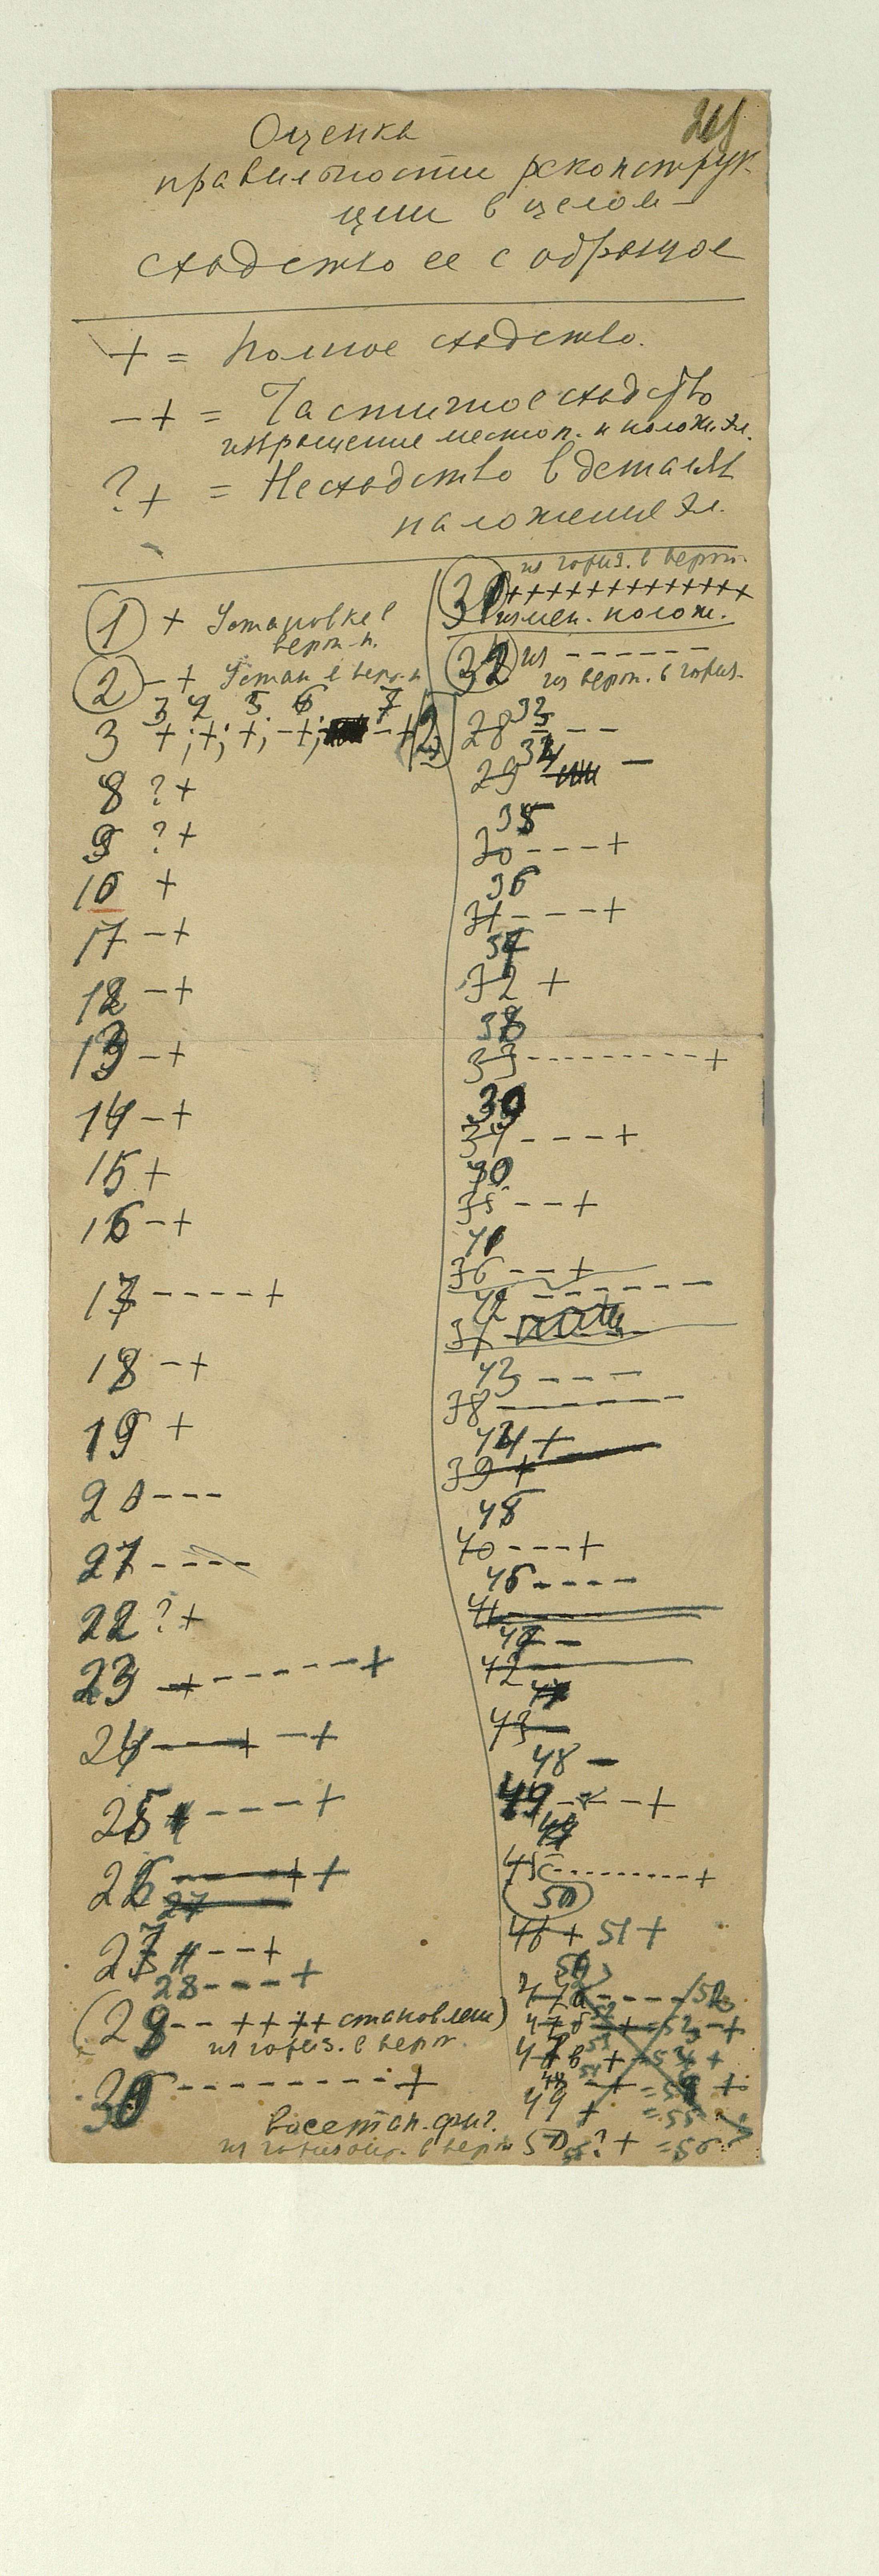 Оценка
правильности реконструк-
ции в целом —
сходство ее с образцом
+ = Полное сходство.
— + = Частичное сходство
извращение местоп. и полож. эл.
? + = Несходство в деталях
положение эл.
1 + Установка в
верт. п.
2 — + Устан в верт. п
3 4 5 6 7
3 +; +; +; — +; — +
8 ? +
9 ? +
10 +
11 — +
12 — +
13 — +
14 — +
15 +
16 — +
17 - - - - +
18 — +
19 +
20 - - -
21 - - - -
22 ? +
23 - - - - - - +
24 — +
25 - - - - +
26 +
27 - - +
28 - - - +
(29 - - + + + + становлен)
из гориз. в верт.
30 - - - - - - - - +
восстан. фиг.
из горизонт. в верт
из гориз. в верт.
31 + + + + + + + + + + + + +
измен. полож.
32 из - - - - - -
из верт. в гориз.
28 33 - -
29 34 —
35
30 - - - +
36
31 - - - +
37
32 +
38
33 - - - - - - - - - +
39
34 - - - +
40
35 - - +
41
36 - - +
42 - - - - - -
37
43 - - -
38
44 +
39 +
45
40 - - - +
46 - - - -
41
47 —
42
43
48 —
49 - - - +
45 - - - - - - - - - +
50
46 + 51 +
47а - - - - 52
47б + = 53 — +
47в + = 54 +
49 + = 55
50 ? + = 56